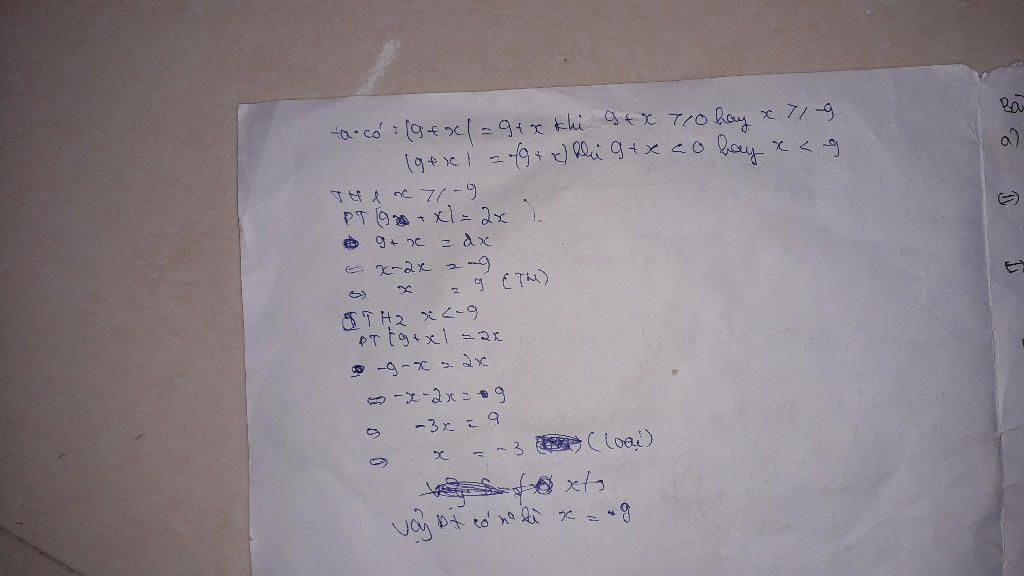 ta có: |9+x| = 9+x khi 9+x ≥ 0 hay x ≥ -9
|9+x| = -(9+x) khi 9+x < 0 hay x < -9
TH1 x ≥ -9
PT |9+x| = 2x
9+x = 2x
⇔ x-2x = -9
⇔ x = 9 (TM)
TH2 x < -9
PT |9+x| = 2x
-9-x = 2x
⇔ -x-2x = 9
⇔ -3x = 9
⇔ x = -3 (loại)
Vậy pt có no là x = 9
Bài
a)
⇔
⇔